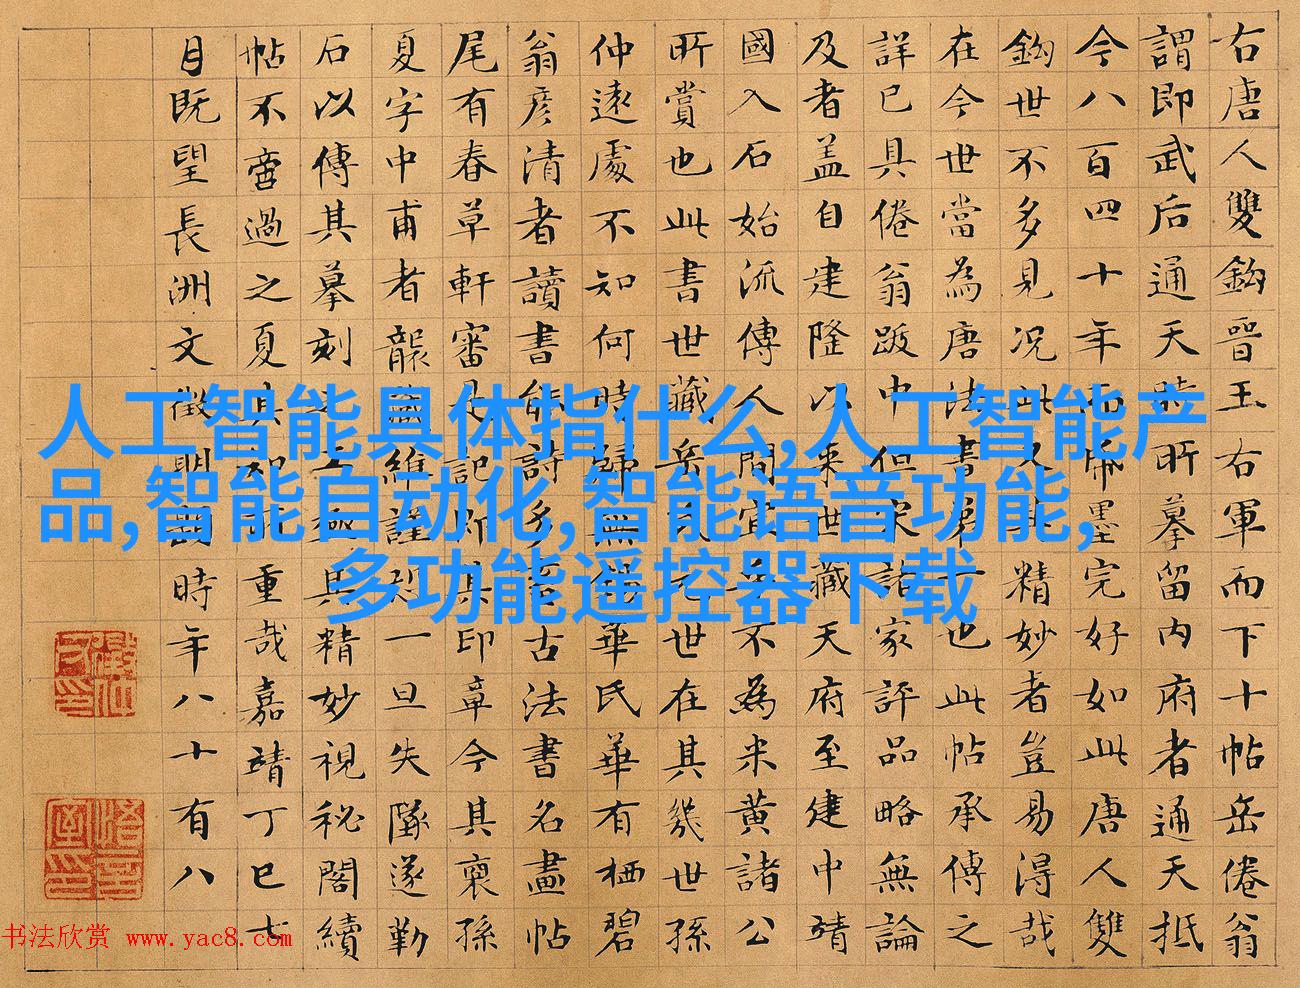 右唐人雙鈎晉王右軍而下十帖岳倦翁
謂即武后通天時所摹留内府者通天抵
今八百四十年而紙墨完好如此唐人雙
鈎世不多見况此又其精妙者豈易得哉
在今世當為唐法書第一也此帖承傳之
詳已具倦翁跋中但宋諸家評品略無論
及者盖自建隆以來世藏天府至建中靖
國入石始流傳人間宜其不為米黄諸公
所賞也此書世藏岳氏元世在其幾世孫
仲遠處不知何時歸無錫華氏華有栖碧
翁彦清者讀書能詩多畜古法書名畫帖
尾有春草軒審定記即其印章今其裔孫
夏字中甫者襲藏維謹恐一旦失墜遂勤
石以傳其摹刻之工極其精妙視秘閣續
帖不啻過之夏其知所重哉嘉靖丁巳七
月既望長洲文徵明題時年八十有八
人工智能具体指什么,人工智能产
品,智能自动化,智能语音功能,
多功能遥控器下载
书法欣赏 www.yac8.com